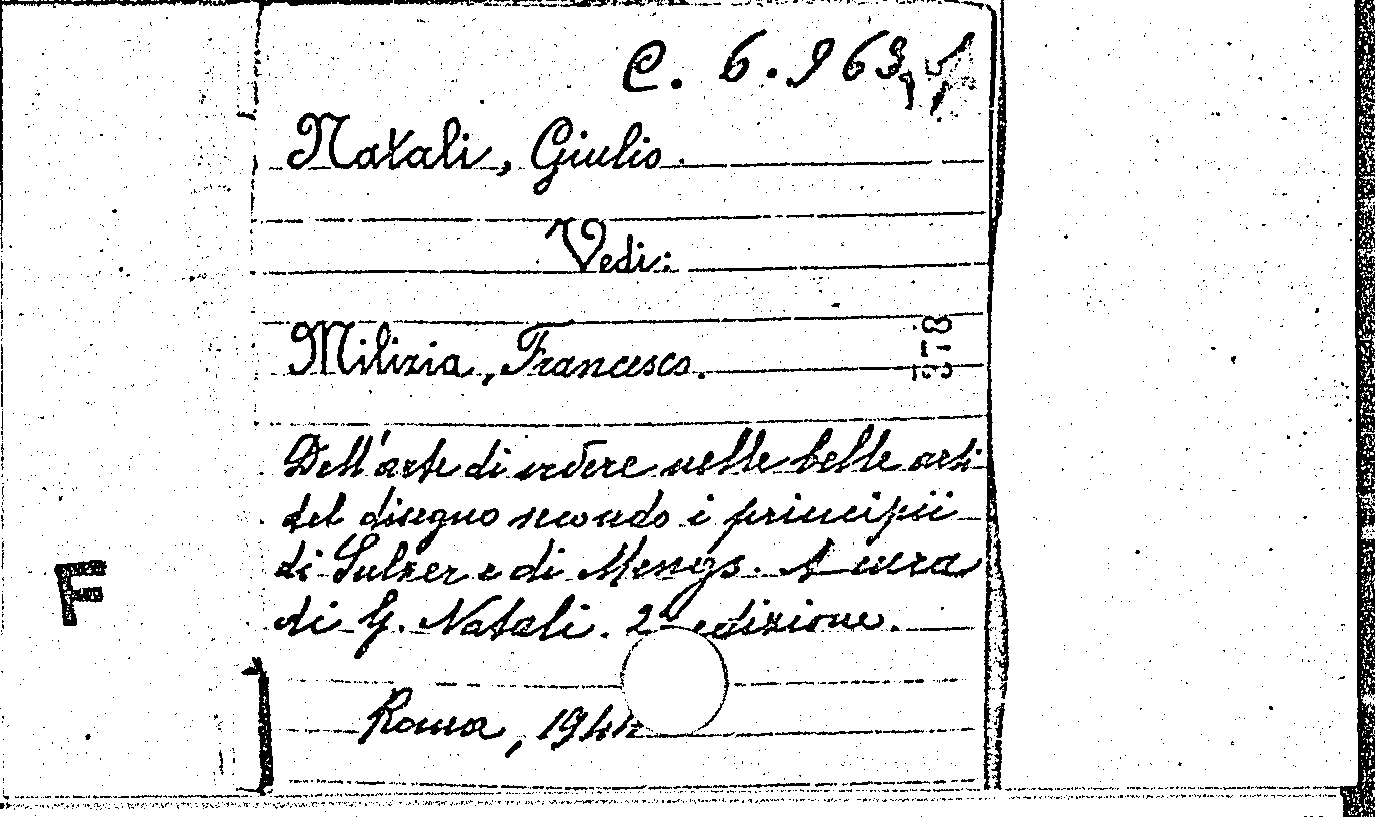 C. 6. 963,
Natali, Giulio.
Vedi:
Milizia, Francesco.
378
Dell'arte di vedere nelle belle arti
del disegno secondo i principii
di Sulzer e di Mengs. A cura
di G. Natali. 2ª edizione.
F
Roma, 1944